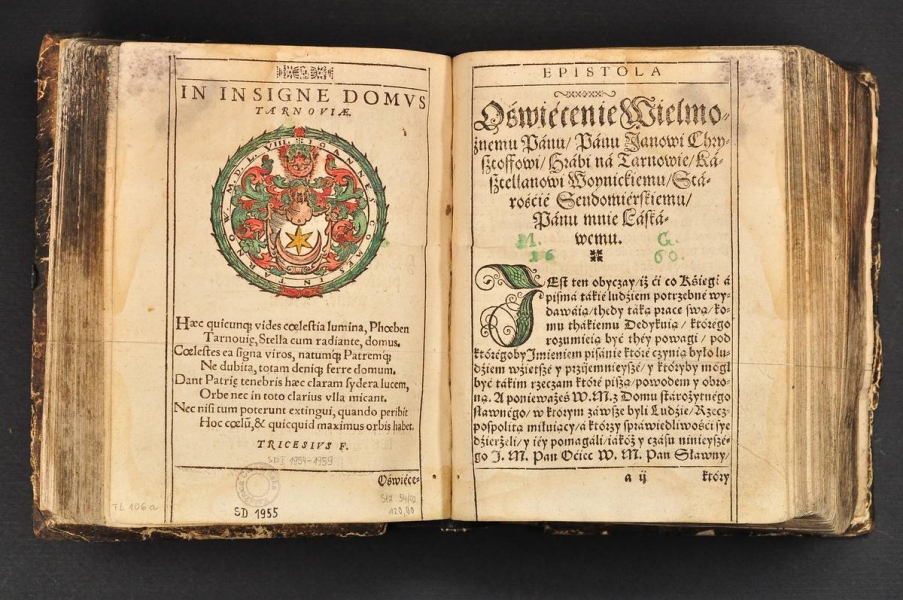 IN INSIGNE DOMVS
TARNOVIÆ.
M. D. L. VIII. IOANNES COMES INT TARNOW
Hæc quicunq; vides cœlestia lumina, Phœben
Tarnouię, Stella cum radiante, domus.
Cœlestes ea signa viros, natumq; Patremq;
Ne dubita, totam deniq; ferre domum.
Dant Patrię tenebris hæc claram sydera lucem,
Orbe nec in toto clarius vlla micant.
Nec nisi tum poterunt extingui, quando peribit
Hoc cœlū, & quicquid maximus orbis habet.
TRICESIVS F.
SD I 1954-1959
Oświéce-
SD 1955
EPISTOLA
Oświécenie Wielmo-
żnemu Pánu/ Pánu Janowi Chry-
sztoffowi/ Hrábi ná Tarnowie/ Ká-
sztellanowi Woynickiemu/ Stá-
rośćié Sendomiérskiemu/
Pánu mnie Łáská-
wemu.
M. G.
16 60.
JEst ten obyczay/ iż ći co Kśięgi á
pismá tákié ludziem potrzebne wy-
dawáią/ thedy táką prace swą/ ko-
mu thákiemu Dedykuią/ którego
rozumieią być théy powagi/ pod
którégoby Jmieniem pisánié któré czynią było lu-
dźiem wźietszé y przyiemnieyszé/ y któryby mógł
być tákim rzeczam któré piszą/ powodem y obro-
ną. A ponieważeś W. M. z Domu stárożytnégo
sławnégo/ w ktorym záwsze byli Ludźie/ Rzecz-
pospolitą miłuiący/ á którzy spráwiedliwości sye
dźierżeli/ y iéy pomagáli/ iákóż y czásu ninieyszé-
go J. M. Pan Oćiec W. M. Pan Sławny/
a ij który